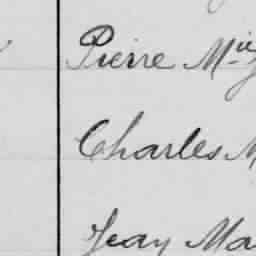 Pierre M.ie
Charles M
Jean Ma